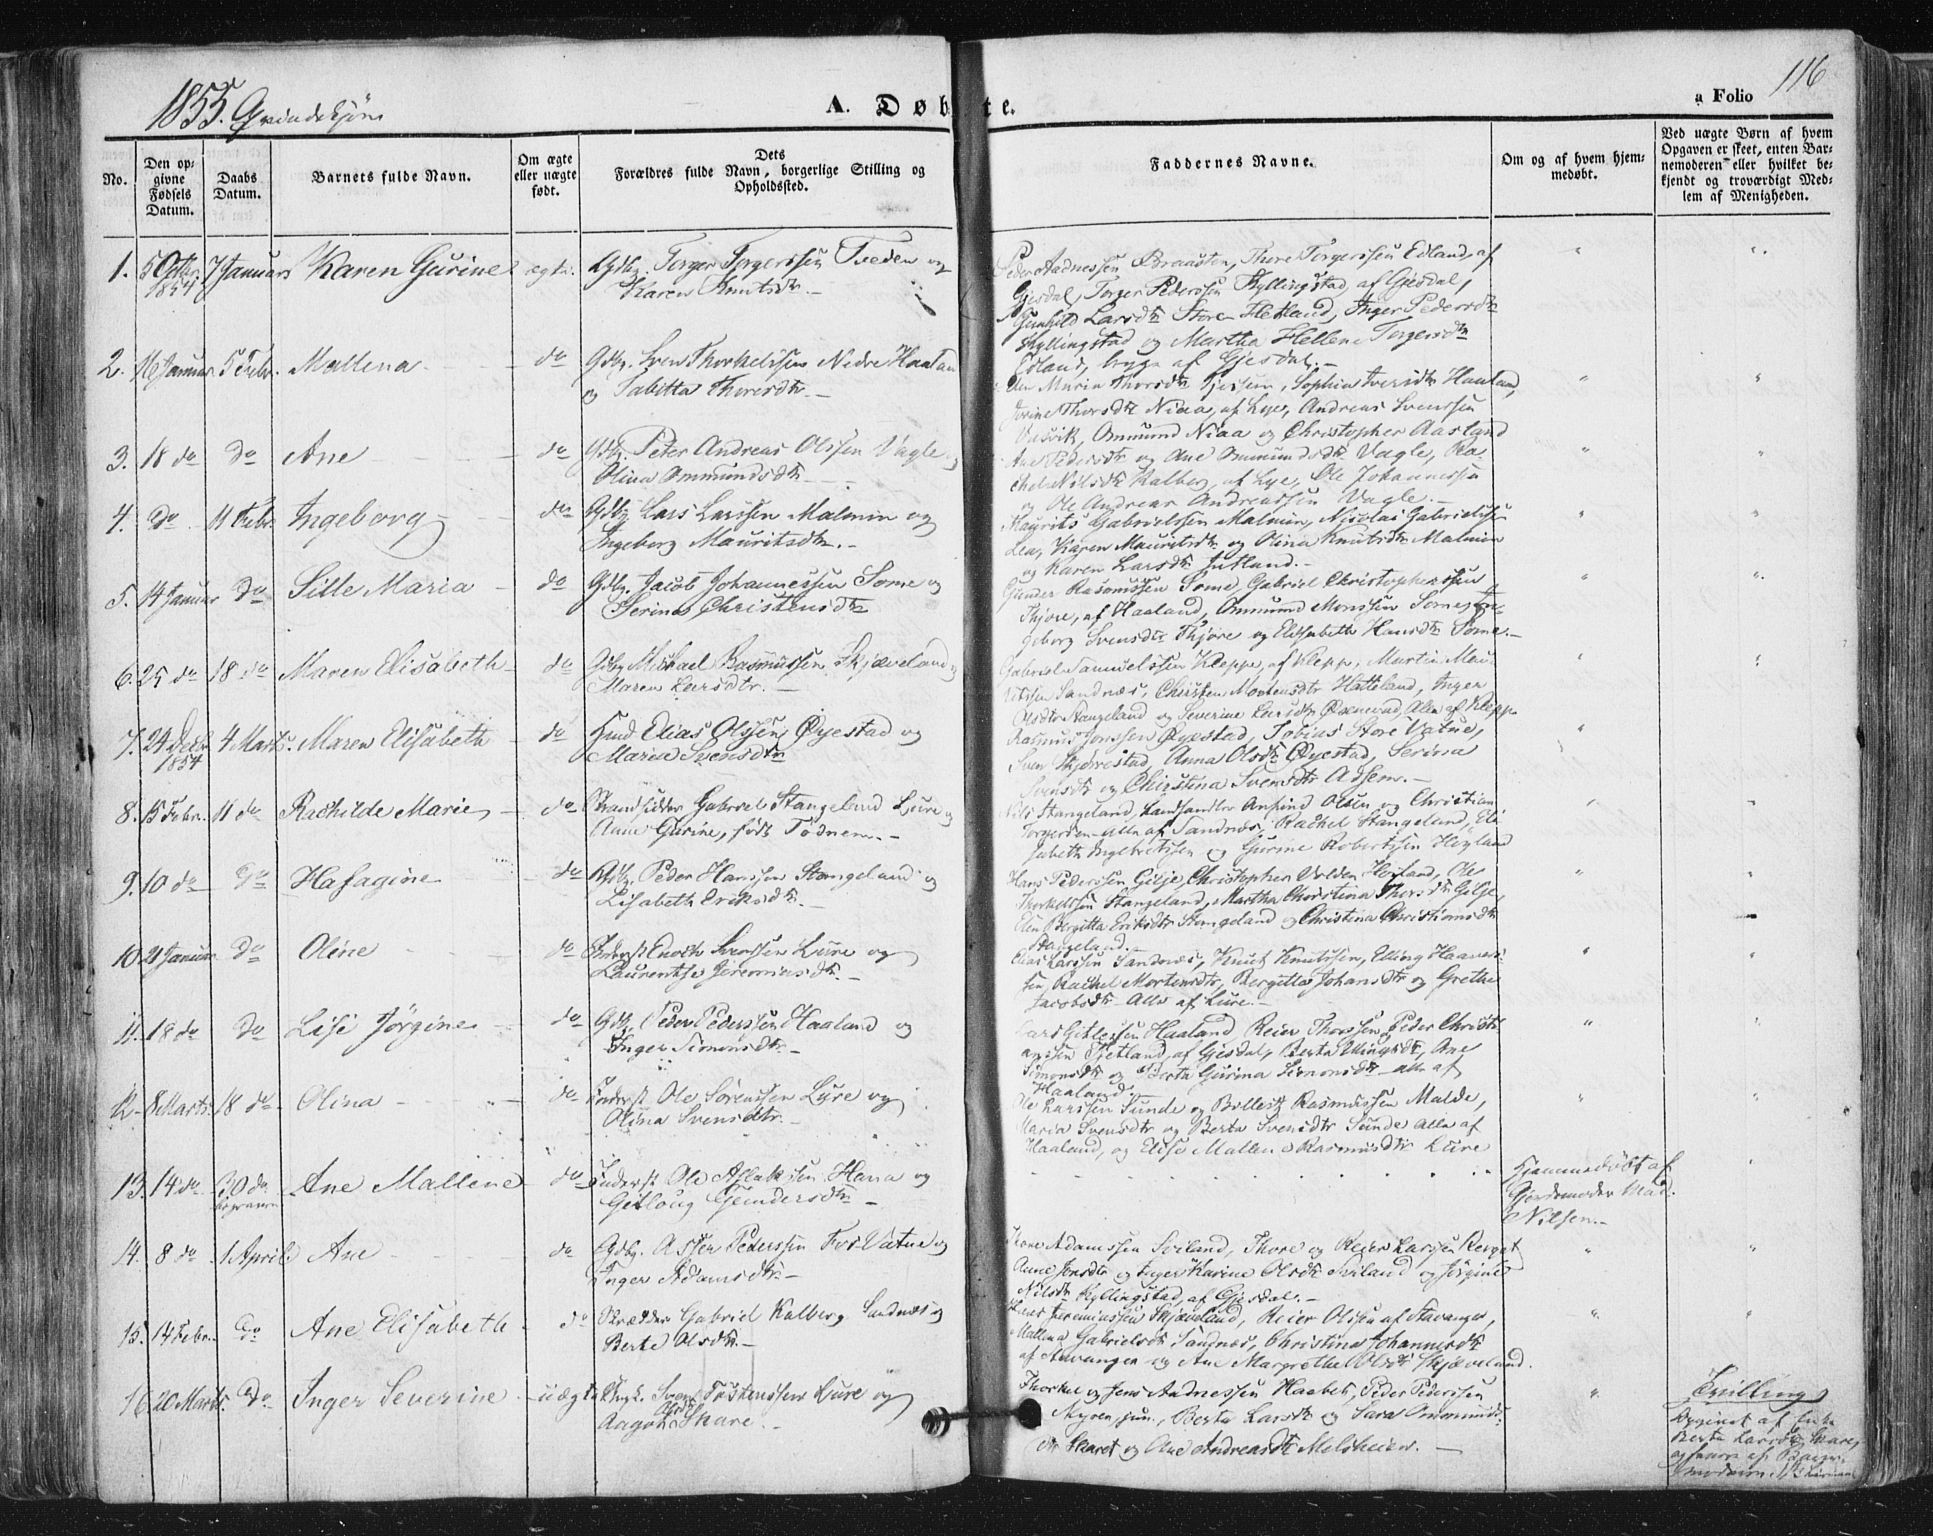 1855. Qvindekjøn
A. Døbte.
a Folio 116
No.
Den opgivne Fødsels Datum.
Daabs Datum.
Barnets fulde Navn.
Om ægte eller uægte født.
Dets Forældres fulde Navn, borgerlige Stilling og Opholdssted.
Faddernes Navne.
Om og af hvem hjemmedøbt.
Ved uægte Børn af hvem Opgaven er skeet, enten Barnemoderen eller hvilket bekjendt og troværdigt Medlem af Menigheden.
1. 5 Octbr. 1854 7 Januar Karen Gurine ægte. Gdbr. Torger Torgerssen Tveden og
Karen Knutsdtr.
Peder Aadnessen Braasten, Thore Torgerssen Edland, af
Gjesdal, Torger Pederssen Kyllingstad af Gjesdal,
Gunhild Larsdtr Store Hetland, Inger Pedersdtr
Kyllingstad og Martha Hellene Torgersdtr
Edland, begge af Gjesdal.
2. 16 Januar 5 Febr. Mallena do Gdbr. Sven Thorkelssen Nedre Haaland
og Tabitta Thoresdtr.
Maria Thorsdtr Sophia Iversdtr Haaland,
Thorsdtr Niaa, af Lye, Andreas Svenssen
Ommund Niaa og Christopher Aasland
3. 18 do do Ane do Gdbr. Peter Andreas Olssen Vagle og
Olina Ommundsdtr.
Ane Pedersdtr og Ane Ommundsdtr Vagle, Rachel
Nilsdtr Kalberg, af Lye, Ole Johannessen
og Ole Andreas Andreassen Vagle.
4. do 11 Febr. Ingeborg do Gdbr Lars Larssen Malmin og
Ingeborg Mauritsdtr.
Maurits Gabrielssen Malmin, Nicolai Gabrielssen
Lea, Karen Mauritsdtr og Olina Knutsdtr Malmin
og Karen Larsdtr Jutland.
5. 14 Januar do Sille Maria do Gdbr. Jacob Johannessen Some og
Serina Christensdtr
Gunder Rasmussen Some, Gabriel Christopherssen
Thjøre, af Haaland, Ommund Monssen Some, Ingeborg
Svensdtr Thjøre og Elisabeth Hansdtr Some.
6. 25 do 18 do Maren Elisabeth do Gdbr Michael Rasmussen Skjæveland og
Maren Larsdtr.
Gabriel Samuelssen Kleppe, af Klepp, Martin Mauritssen
Sandnæs, Chirsten Mortensdtr Hatteland, Inger
Olsdtr Stangeland og Severine Larsdtr Øxnevad, Alle af Klepp
7. 24 Decbr 1854 4 Marts. Maren Elisabeth do Hmd Elias Olssen Øyestad og
Maria Svensdtr
Rasmus Jonssen Øyestad, Tobias Store Vatne,
Sven Skjørestad, Anna Olsdtr Øyestad, Serina
Svensdtr og Christina Svensdtr Adsem.
8. 15 Febr. 11 do Rachilde Marie do Strandsidder Gabriel Stangeland Lure og
Anne Gurine, født Tødnem.
Nils Stangeland, Landhandler Anfind Olsen og Christian
Torgersen Alle af Sandnæs, Rachel Stangeland, Elisabeth
Ingbretssen og Gurine Robertsen Høyland
9. 10 do do Hafagine do Gdbr. Peder Hanssen Stangeland og
Lisabeth Eriksdtr.
Hans Pederssen Gilje, Christopher Volden Høiland, Ole
Thorkelssen Stangeland, Martha Christina Thorsdtr Gilje,
Elen Bergitta Eriksdtr Stangeland og Christina Christiansdtr
Stangeland.
10 21 Januar do Oline do Inderst Enoch Svenssen Lure og
Laurentse Jeremiasdtr.
Elias Larssen Sandnæs, Knut Knutssen, Elling Haaverssen,
Rachel Mortensdtr, Bergitta Johansdtr og Grethe
Jacobsdtr Alle af Lure.
11. 18 do do Lise Jørgine do Gdbr. Peder Pederssen Haaland og
Inger Simonsdtr.
Lars Gitlessen Haaland, Reier Thorssen, Peder Christianssen
Hetland, af Gjesdal, Berta Ellingsdtr, Ane
Simonsdtr og Berta Gurina Simonsdtr alle af
Haaland.
12. 8 Marts 18 do Olina do Inderst Ole Sørenssen Lure og
Olina Svensdtr.
Ole Larssen Sunde og Rasmussen Malde,
Maria Svensdtr og Berta Svensdtr Sunde Alle af
Haaland, og Elise Mallene Rasmusdtr Lure
13. 14 do 30 do Begraven Ane Mallene do Inderst Ole Aslaksen Hana og
Gitloug Gundersdtr
Hjemmedøbt af
Gjordemoder Mad.
Nilsen.
14. 8 do 1 April Ane do Gdbr. Asser Pederssen Fos Vatne og
Inger Adamsdtr
Thore Adamssen Sviland, Thore og Reier Larssen
Anne Jonsdtr og Inger Karine Olsdtr Sviland og Jørgine
Nilsdtr Kyllingstad, af Gjesdal.
15. 14 Febr. do Ane Elisabeth do Skrædder Gabriel Kalberg Sandnæs og
Berte Olsdtr.
Jeremiassen Skjæveland, Reier Olssen af Stavanger,
Mallena Gabrielsdtr Sandnæs, Christina Johannesdtr
af Stavanger og Ane Margrethe Olsdtr Skjæveland.
16. 20 Marts do Inger Severine uægte Ungk. Svend Tostenssen Lure og
Aagot Olsdtr Skare.
Thorkel og Jens Aadnessen Haabet, Peder Pederssen
Myren, jun., Berta Larsdtr og Sara Ommundsdtr
Skaret og Ane Andreasdtr Melsheien.
Tvilling
Opgivet af Enke
Berta Larsdtr Skare,